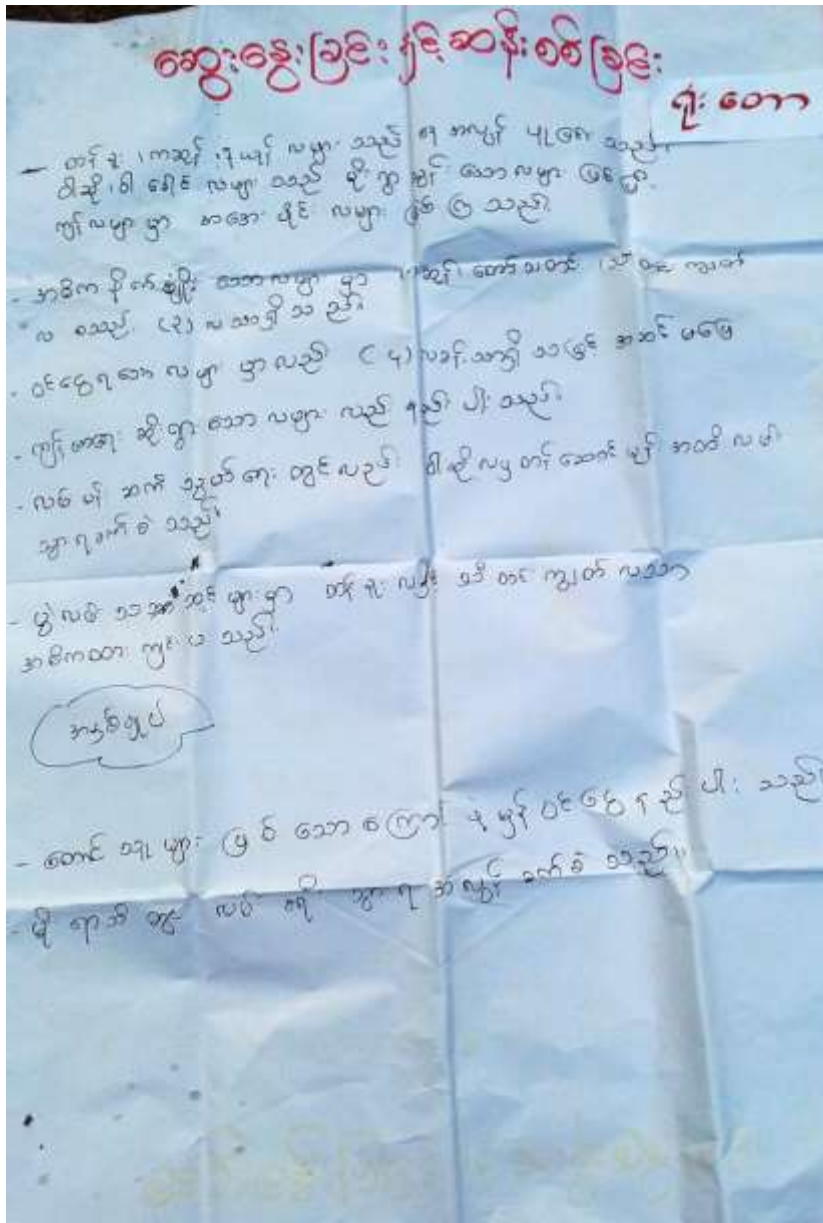 ဆွေးနွေးခြင်းနှင့်ဆန်းစစ်ခြင်း
ရိုးတော
- တန်ခူး၊ ကဆုန်၊ နယုန် လများ သည် ရေ အလွန် ရှားသည်။
ဝါဆို၊ ဝါခေါင် လများ သည် မိုးရွာသွန်း သောလများ ဖြစ်ပြီး
ကျန်လများမှာ အအေးပိုင်း လများ ဖြစ်ကြသည်။
- အဓိက စိုက်ပျိုး သောလများ မှာ ကဆုန် တော်သလင်း သီတင်းကျွတ်
လ စသည့် (၃) လသာရှိသည်။
- ဝင်ငွေရသော လများ မှာလည်း (၄) လခန့်သာရှိသဖြင့် အဆင်မပြေ
- ကျန်းမာရေး ဆိုးရွားသောလများ လည်း နည်းပါးသည်။
- လမ်းပန်း ဆက်သွယ်ရေး တွင်လည်း ဝါဆိုလမှ တန်ဆောင်မုန်း အထိ လမ်း
သွားရခက်ခဲသည်။
- ပွဲလမ်းသဘင်များမှာ တန်ခူး လနှင့် သီတင်းကျွတ် လသာ
အဓိကထား ကျင်းပသည်။
အနှစ်ချုပ်
- တောင်သူများ ဖြစ်သောကြောင့် ပုံမှန်ဝင်ငွေ နည်းပါးသည်။
- မိုးရာသီတွင် လမ်းခရီး သွားရ အလွန်ခက်ခဲသည်။